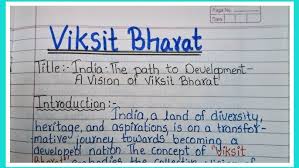 Page No.
Date
Viksit Bharat
Title :- India : The path to Development-
A Vision of Viksit Bharat
Introduction :-
India, a land of diversity,
heritage, and aspirations is on a transfor-
mative journey towards becoming a
developed nation. The concept of "Viksit